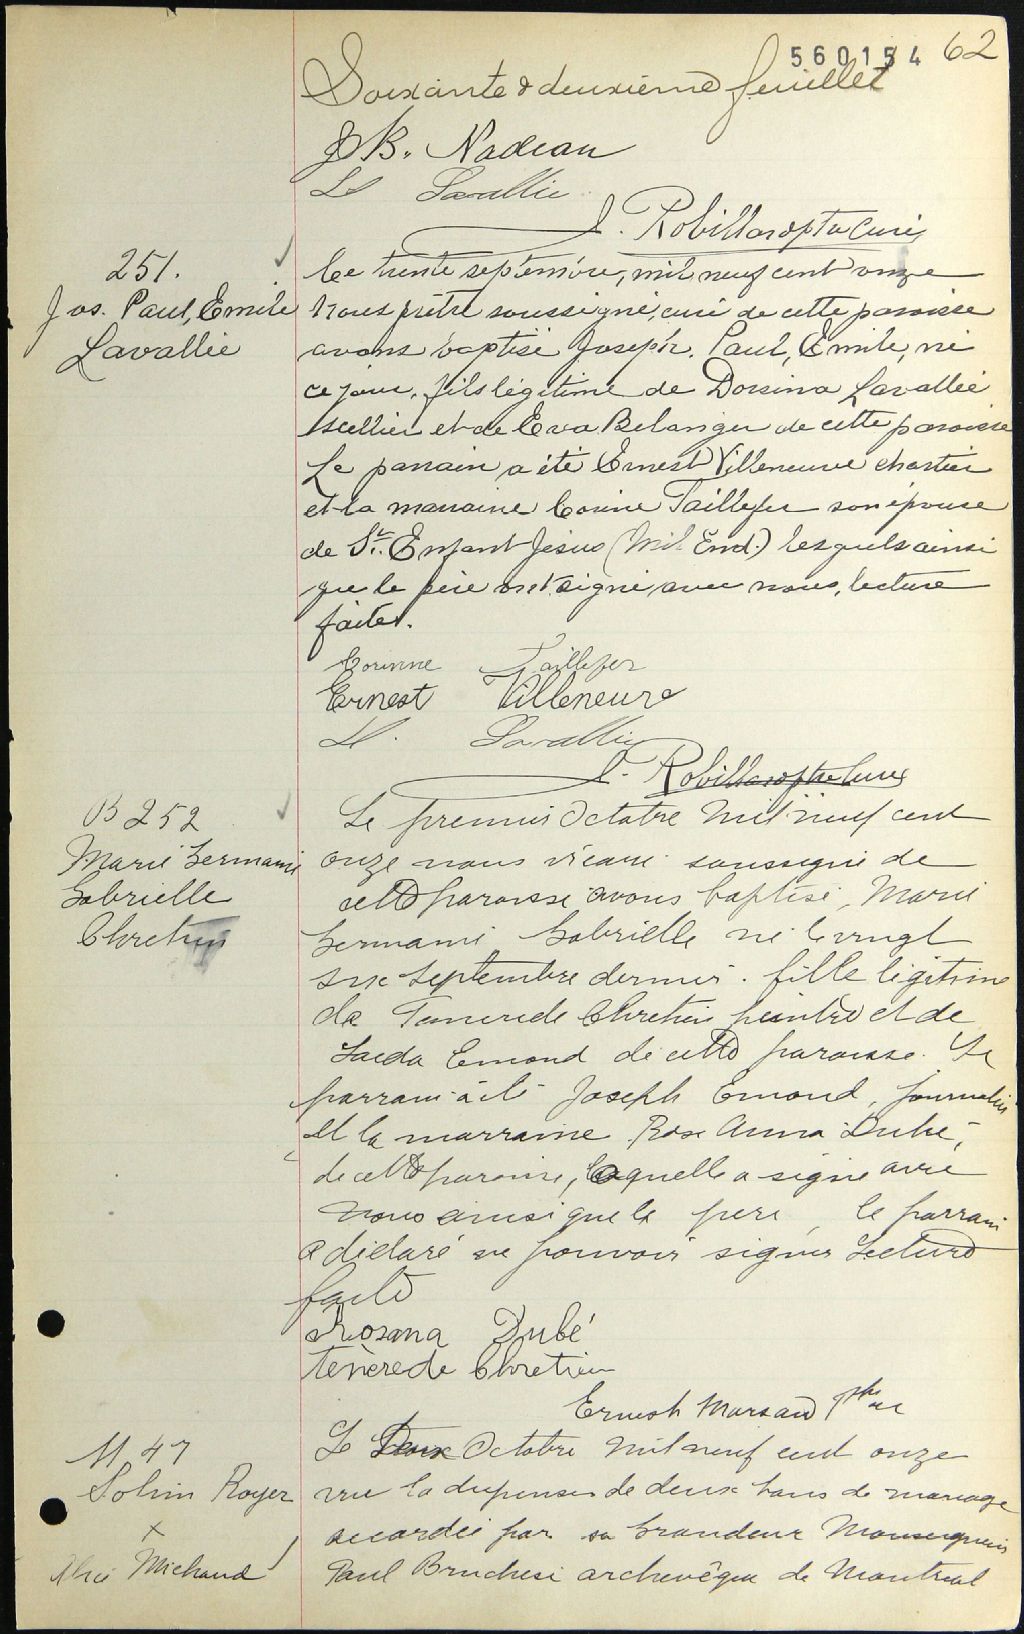 560154 62
Soixante & deuxième feuillet
J B. Nadeau
Lavallée
J. Robillard ptre Curé
251.
Jos. Paul, Emile
Lavallée
Ce trente septembre, mil neuf cent onze
Nous prêtre soussigné, curé de cette paroisse
avons baptisé Joseph. Paul, Emile, né
ce jour, fils légitime de Dorsina Lavallée
sellier et de Eva Belanger de cette paroisse
Le parrain a été Ernest Villeneuve chartier
et la marraine Corine Taillefer son épouse
de St. Enfant Jésus (Mil End.) lesquels ainsi
que le père ont signé avec nous, lecture
faite.
Corinne Taillefer
Ernest Villeneuve
Lavallée
J. Robillard ptre Curé
B 252
Marie Germanie
Gabrielle
Chretien
Le premier Octobre Mil neuf cent
onze nous vicaire soussigné de
cette paroisse avons baptisé, Marie
Germanie Gabrielle né le vingt
six septembre dernier. fille légitime
de Chretien peintre et de
Emond de cette paroisse. Le
parrain a été Joseph Emond, journalier
et la marraine Rose Anna Dubé,
de cette paroisse, laquelle a signé avec
nous ainsi que le père, le parrain
a déclaré ne pouvoir signer Lecture
faite
Rosana Dubé
Ténèrede Chretien
Ernest
M 47
Royer
x
Michaud
Le Deux Octobre Mil neuf cent onze
vu la dispense de deux bans de mariage
accordée par sa Grandeur Monseigneur
Paul Bruchesi archevêque de Montreal